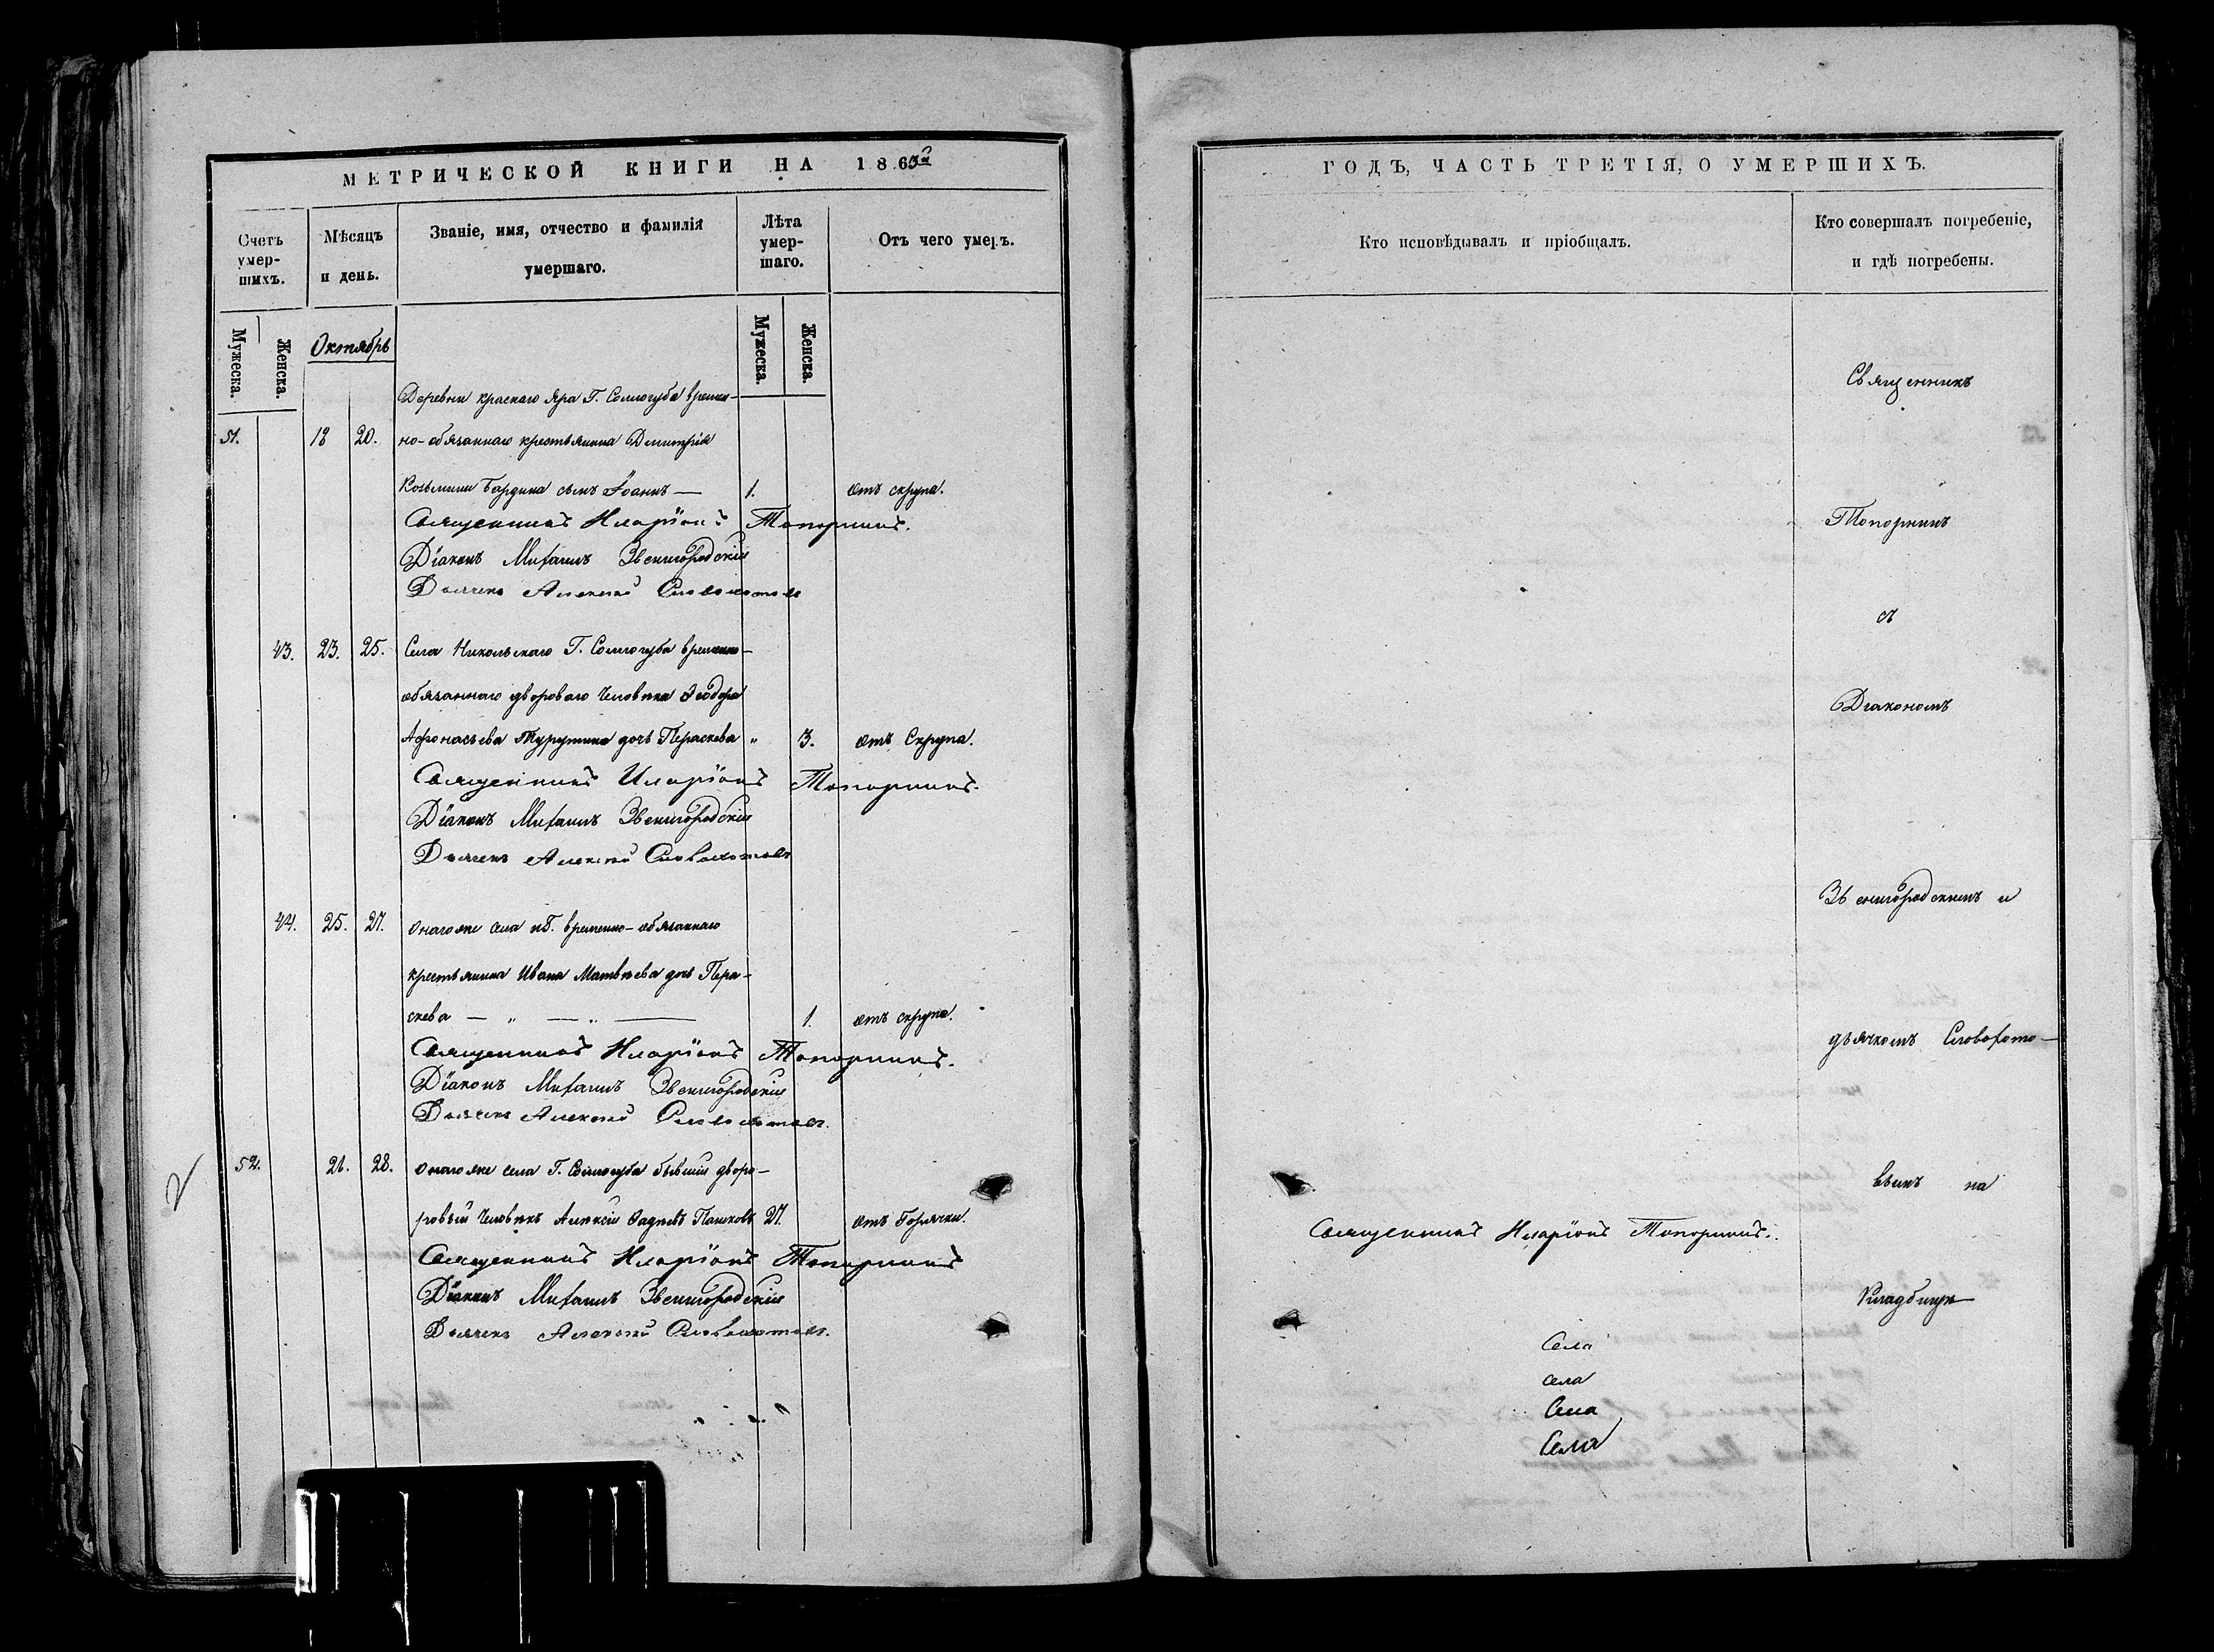 МЕТРИЧЕСКОЙ КНИГИ НА 1863й
Счетъ умер-шихъ.
Мѣсяцъ и день.
Званіе, имя, отчество и фамилія умершаго.
Лѣта умер-шаго.
Отъ чего умеръ.
Мужеска.
Женска.
Октябрь
Мужеска.
Женска.
Деревни краснаго яра Г. Соллогуба времен-
51. 18 20. но-обязаннаго крестьянина Димитрія
Козьмина Бардина сынъ Іоаннъ — 1. отъ скрупа.
Священникъ Иларіонъ Топорнинъ.
Діаконъ Михаилъ Звенигородскій
Дьячекъ Алексѣй Словохотовъ
43. 23. 25. Села Никольскаго Г. Соллогуба временно-
обязаннаго двороваго человѣка Ѳеодора
Афонасьева дочь Параскева " 3. отъ Скрупа.
Священникъ Иларіонъ Топорнинъ.
Діаконъ Михаилъ Звенигородскій
Дьячекъ Алексѣй Словохотовъ
44. 25. 27. онагоже села временно-обязаннаго
крестьянина Ивана Матвѣева дочь Пара-
скева — " — " — 1. отъ скрупа.
Священникъ Иларіонъ Топорнинъ.
Діаконъ Михаилъ Звенигородскій
Дьячекъ Алексѣй Словохотовъ.
52. 28. онагоже села Г. Соллогуба бывшій дворо-
ровый человѣкъ Алексій Пашковъ 27. отъ Горячки.
Священникъ Иларіонъ Топорнинъ
Діаконъ Михаилъ Звенигородскій
Дьячекъ Алексѣй Словохотовъ.
ГОДЪ, ЧАСТЬ ТРЕТІЯ, О УМЕРШИХЪ.
Кто исповѣдывалъ и пріобщалъ.
Кто совершалъ погребеніе,
и гдѣ погребены.
Священникъ
Топорнинъ
съ
Діакономъ
Звенигородскимъ и
дьячкомъ Словохото-
вымъ на
Священникъ Иларіонъ Топорнинъ.
Кладбищѣ
Села
села
Села
Села